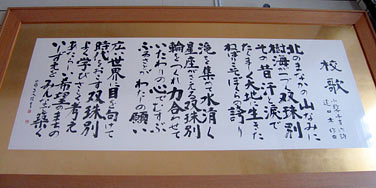 校歌
北のまなかの 山なみに
樹海が一つ 双珠別
その昔 汗と涙で
たくましく大地に生きた
ねばりこそぼくらの誇り
滝を集めて水清く
星座がこたえる 双珠別
輪をつくれ力合わせて
いたわりの心でむすぶ
ふるさとが わたしの願い
広い世界に目を向けて
時代をおこす 双珠別
よく学び さらに考え
あたらしい希望のまちの
いしずえを みんなで築く